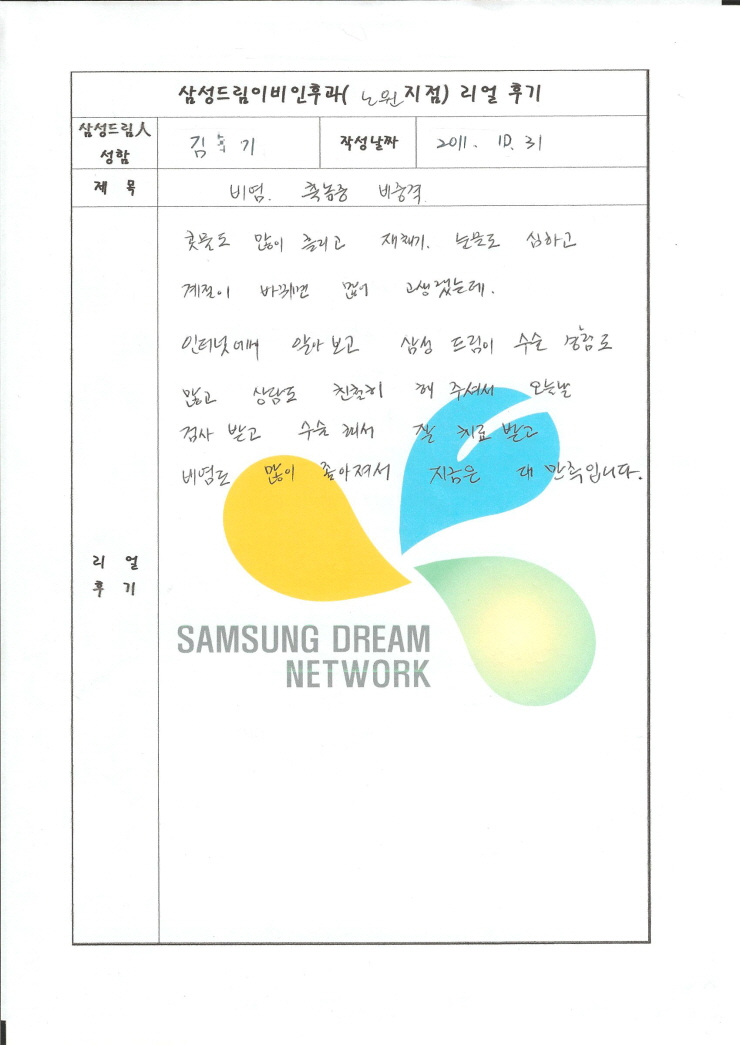 삼성드림이비인후과( 노원지점) 리얼 후기
삼성드림人 성함
김 기
작성날짜
2011. 10. 31
제 목
비염. 축농증 비중격
콧물도 많이 흘리고 재채기. 눈물도 심하고
계절이 바뀌면 많이 고생했는데.
인터넷에서 알아보고 삼성 드림이 수술 경험도
많고 상담도 친절히 해 주셔서 오늘날
검사 받고 수술 해서 잘 치료 받고
비염도 많이 좋아져서 지금은 대 만족입니다.
리 얼
후 기
SAMSUNG DREAM
NETWORK